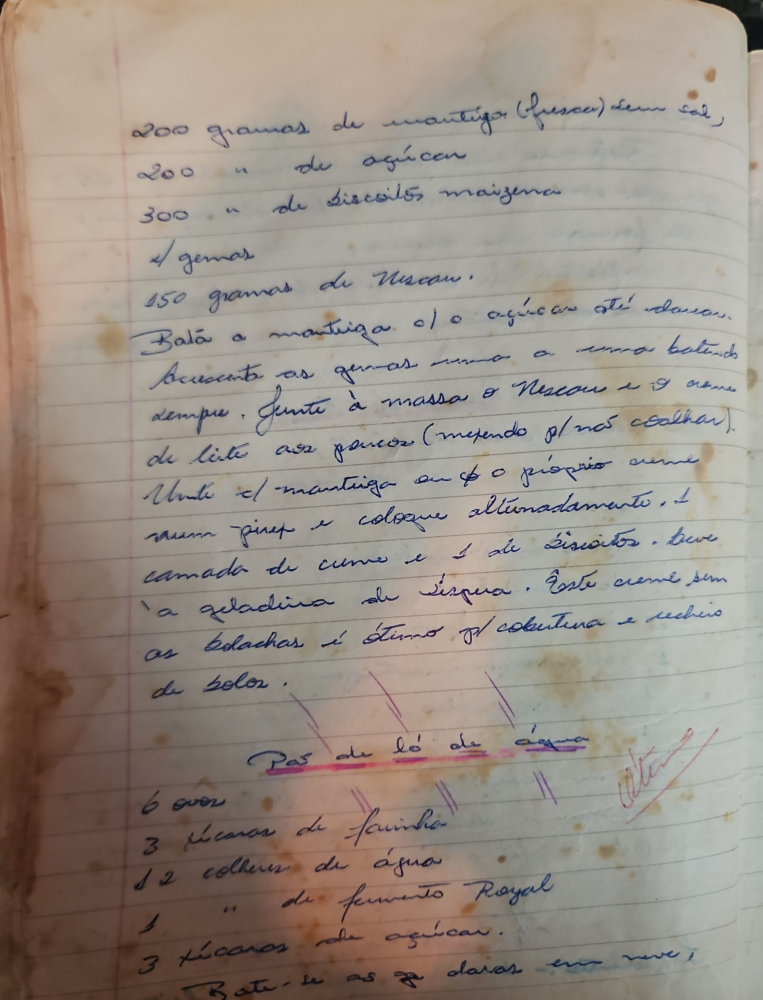 200 gramas de mantiga (fresca) sem sal,
200 " de açúcar
300 " de biscoitos maizena
4 gemas
150 gramas de Nescau.
Batá a manteiga c/ o açúcar até clarear.
Acrescente as gemas uma a uma batendo
sempre. Junte à massa o Nescau e o creme
de leite aos poucos (mexendo p/ não coalhar).
Unte c/ manteiga ou o próprio creme
num pirex e coloque alternadamente. 1
camada de creme e 1 de biscoitos. Leve
à geladeira de véspera. Êste creme sem
as bolachas é ótimo p/ cobertura e recheio
de bolos.
Pão de ló de água
ótimo
6 ovos
3 xícaras de farinha
12 colheres de água
1 " de fermento Royal
3 xícaras de açúcar.
Bate-se as claras em neve,